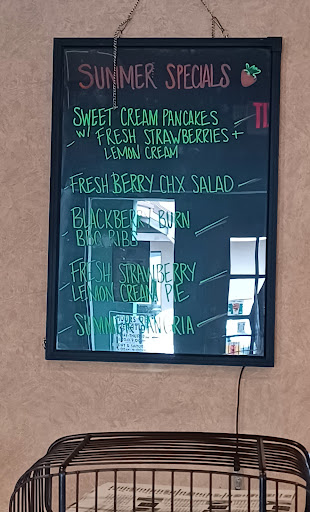 SUMMER SPECIALS
SWEET CREAM PANCAKES
w/ FRESH STRAWBERRIES +
LEMON CREAM
- FRESH BERRY CHX SALAD -
BLACKBERRY BURN
BBQ RIBS
FRESH STRAWBERRY
LEMON CREAM PIE
SUMMER SANGRIA